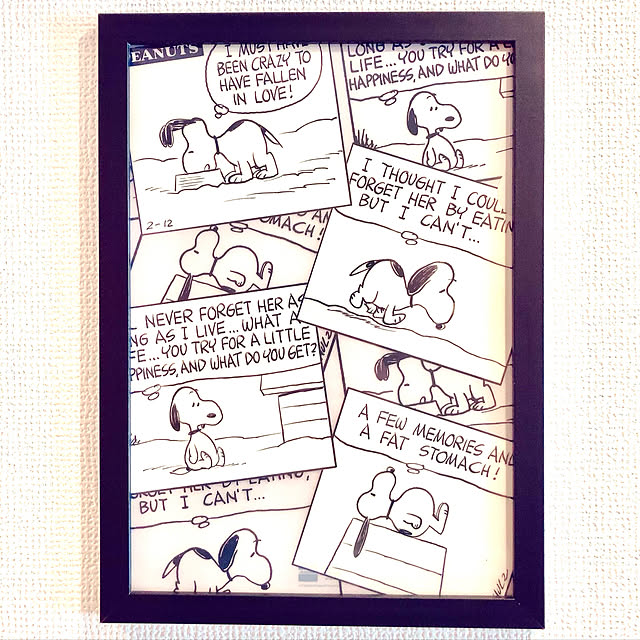 EANUTS
I MUST HAVE
BEEN CRAZY TO
HAVE FALLEN
IN LOVE!
2-12
LONG AS
LIFE...YOU TRY FOR A
HAPPINESS, AND WHAT DO YO
I THOUGHT I COUL
FORGET HER BY EATIN
BUT I CAN'T...
AN
OMACH!
L NEVER FORGET HER AS
NG AS I LIVE...WHAT A
FE...YOU TRY FOR A LITTLE
PPINESS, AND WHAT DO YOU GET?
A FEW MEMORIES AND
A FAT STOMACH!
ORGET HER BY EATING,
BUT I CAN'T...